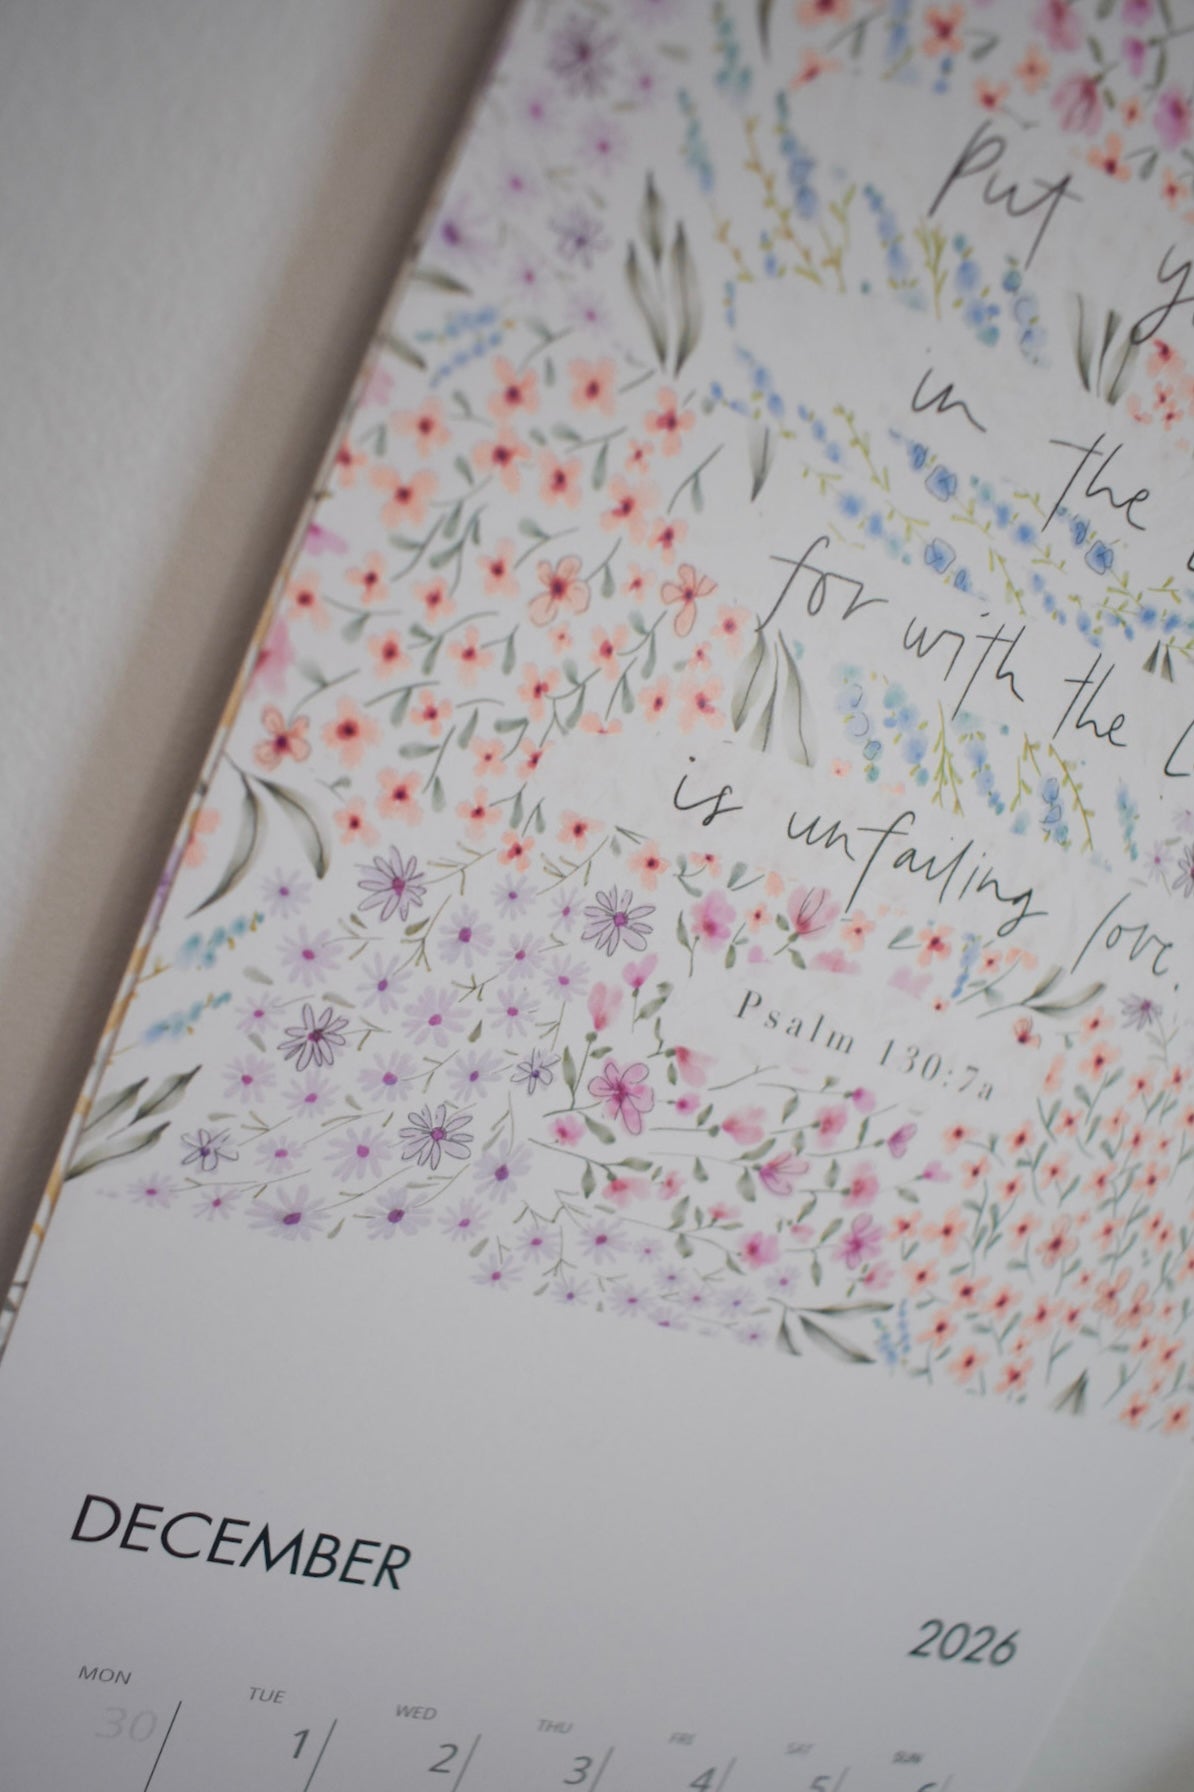 Put
in the
for with the
is unfailing love.
Psalm 130:7a
DECEMBER
2026
MON TUE WED THU FRI SAT SUN
30 1 2 3 4 5 6